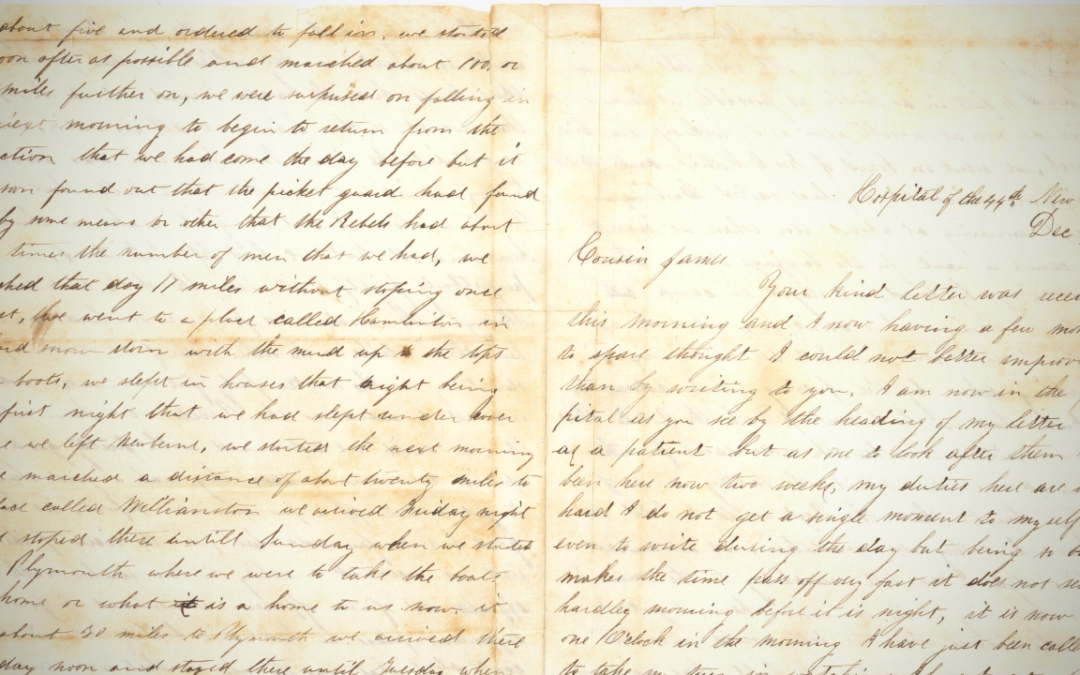 about five and ordered to fall in. we started
soon after as possible and marched about 100 or
miles further on, we were surprised on falling in
next morning to begin to return from the
ction that we had come the day before but it
soon found out that the picket guard had found
by some means or other that the Rebels had about
times the number of men that we had, we
ched that day 17 miles without stoping once
we went to a place called Hamilton in
snow storm with the mud up to the tops
boots, we slept in houses that night being
first night that we had slept under cover
e we left Newbern, we started the next morning
e marched a distance of about twenty miles to
lace called Williamston we arrived Friday night
d stoped there untill Sunday when we started
Plymouth where we were to take the boats
home or what is a home to us now. it
about 20 miles to Plymouth we arrived there
day noon and stayed there until Tuesday when
Hospital of the 44th New
Dec
Cousin James
Your kind letter was recei
this morning and I now having a few mom
to spare thought I could not better improv
than by writing to you. I am now in the
pital as you see by the heading of my letter
as a patient but as one to look after them
been here now two weeks, my duties here are
hard I do not get a single moment to myself
even to write during the day but being so b
makes the time pass off very fast it does not se
hardley morning before it is night, it is now
one O'clock in the morning I have just been calle
to take my turn in